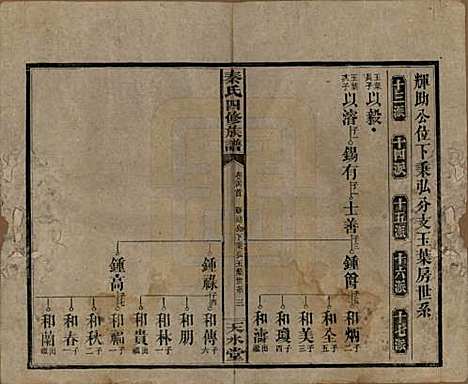 輝助公位下秉弘分支玉葉房世系
十三派 十四派 十五派 十六派 十七派
玉葉長子 以毅
玉葉次子 以濬
錫有
士善
鍾爵
和炳
和全
和美
和瓊
和濤
秦氏四修族譜
天水堂
鍾祿
和傳
和朋
和林
和貴
鍾高
和福
和秋
和春
和蘭